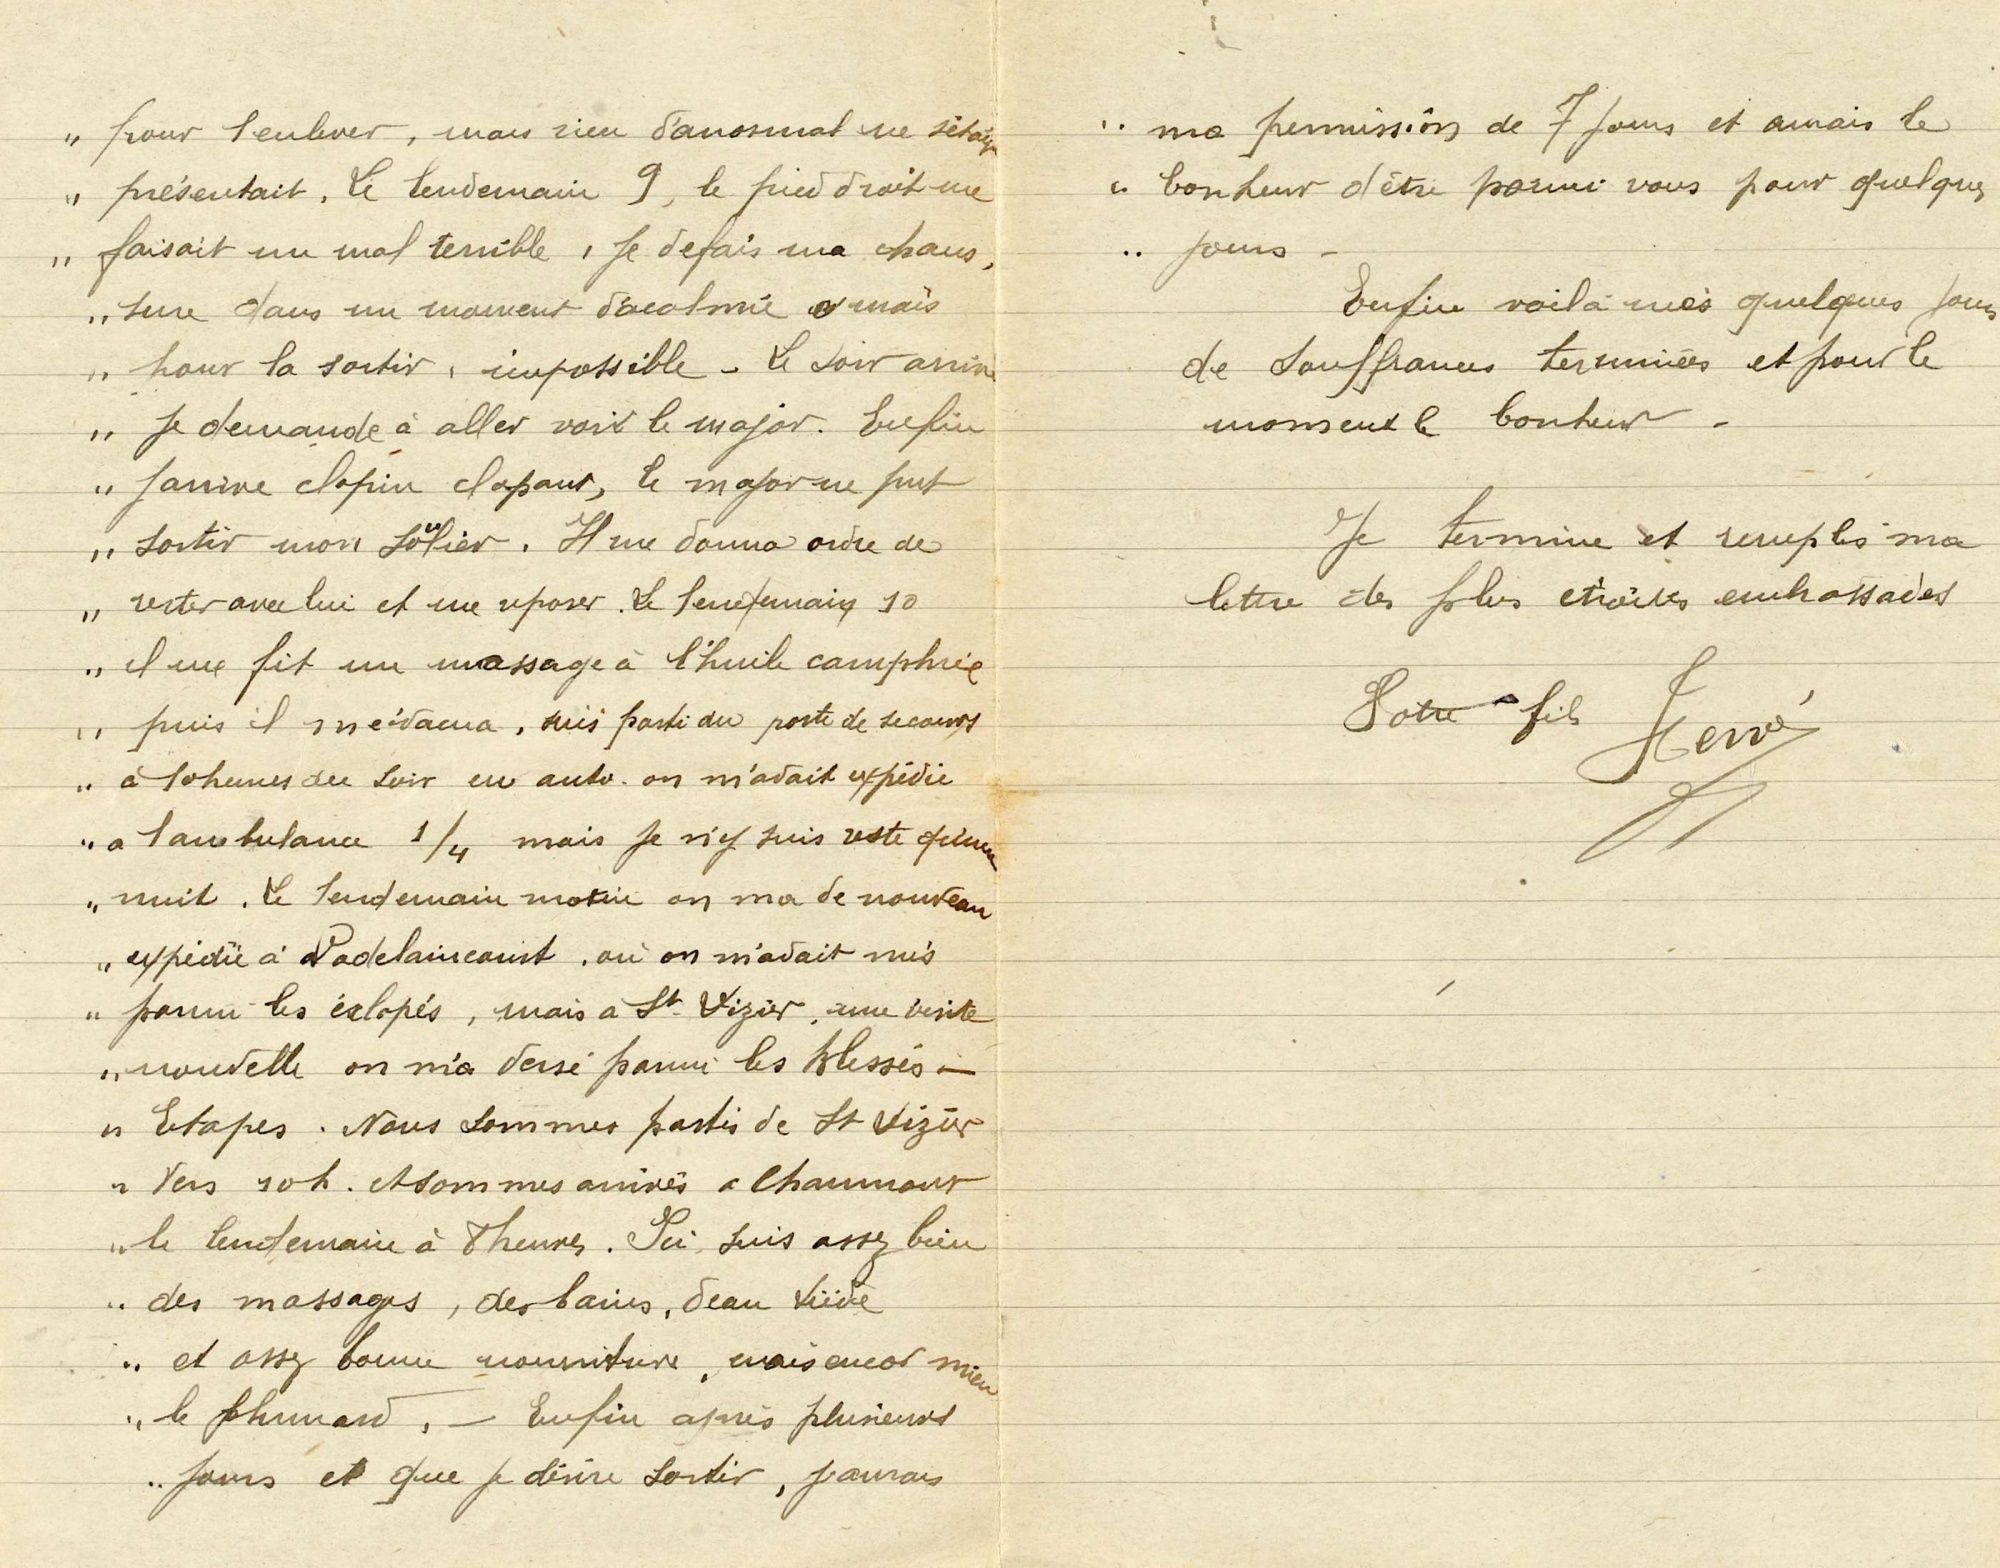 „ pour l'enlever, mais rien d'anormal ne s'était
„ présentait. Le lendemain 9, le pied droit me
„ faisait un mal terrible, Je defais ma chaus,
„ sure dans un moment d'acalmie mais
„ pour la sortir, impossible - Le soir arrive
„ Je demande à aller voir le major. Enfin
„ J'arrive clopin clopant, le major ne put
„ sortir mon soulier. Il me donna ordre de
„ rester avec lui et me reposer. Le lendemain 10
„ il me fit un massage à l'huile camphrée
„ puis il m'évacua, suis parti du poste de secours
„ à 10 heures du soir en auto. on m'avait expédié
„ a l'ambulance 1/4 mais Je n'y suis resté qu'une
„ nuit. Le lendemain matin on m'a de nouveau
„ expédié à Vadelaincourt, où on m'avait mis
„ parmi les éclopés, mais à St Dizier, une visite
„ nouvelle on m'a versé parmi les blessés -
„ Etapes. Nous sommes partis de St Dizier
„ Vers 10h. et sommes arrivés a Chaumont
„ le lendemain à 7 heures. Ici suis assez bien
„ des massages, des bains, d'eau tiède
„ et assez bonne nourriture, mais encor mieu
„ le plumard, - Enfin après plusieurs
„ Jours et que Je désire sortir, J'aurais
„ ma permission de 7 Jours et aurais le
„ bonheur d'être parmi vous pour quelques
„ Jours -
Enfin voilà mes quelques Jours
de souffrances terminées et pour le
moment le bonheur -
Je termine et remplis ma
lettre des plus étroites embrassades
Votre fils Hervé